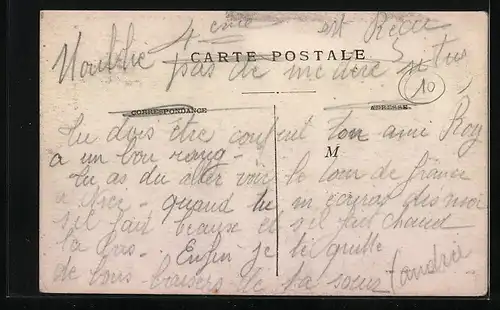 4eme est Reçu
CARTE POSTALE
N'oublie pas de me dire si tu
10
CORRESPONDANCE
ADRESSE
Tu dois être content ton ami Roy
M
a un bon rang -
Tu as du aller voir le tour de france
a Nice - quand tu m ecriras dis moi
s'il fait beau et s'il fait chaud
la bas - Enfin je te quitte
de bons baisers de ta soeur
Candrée